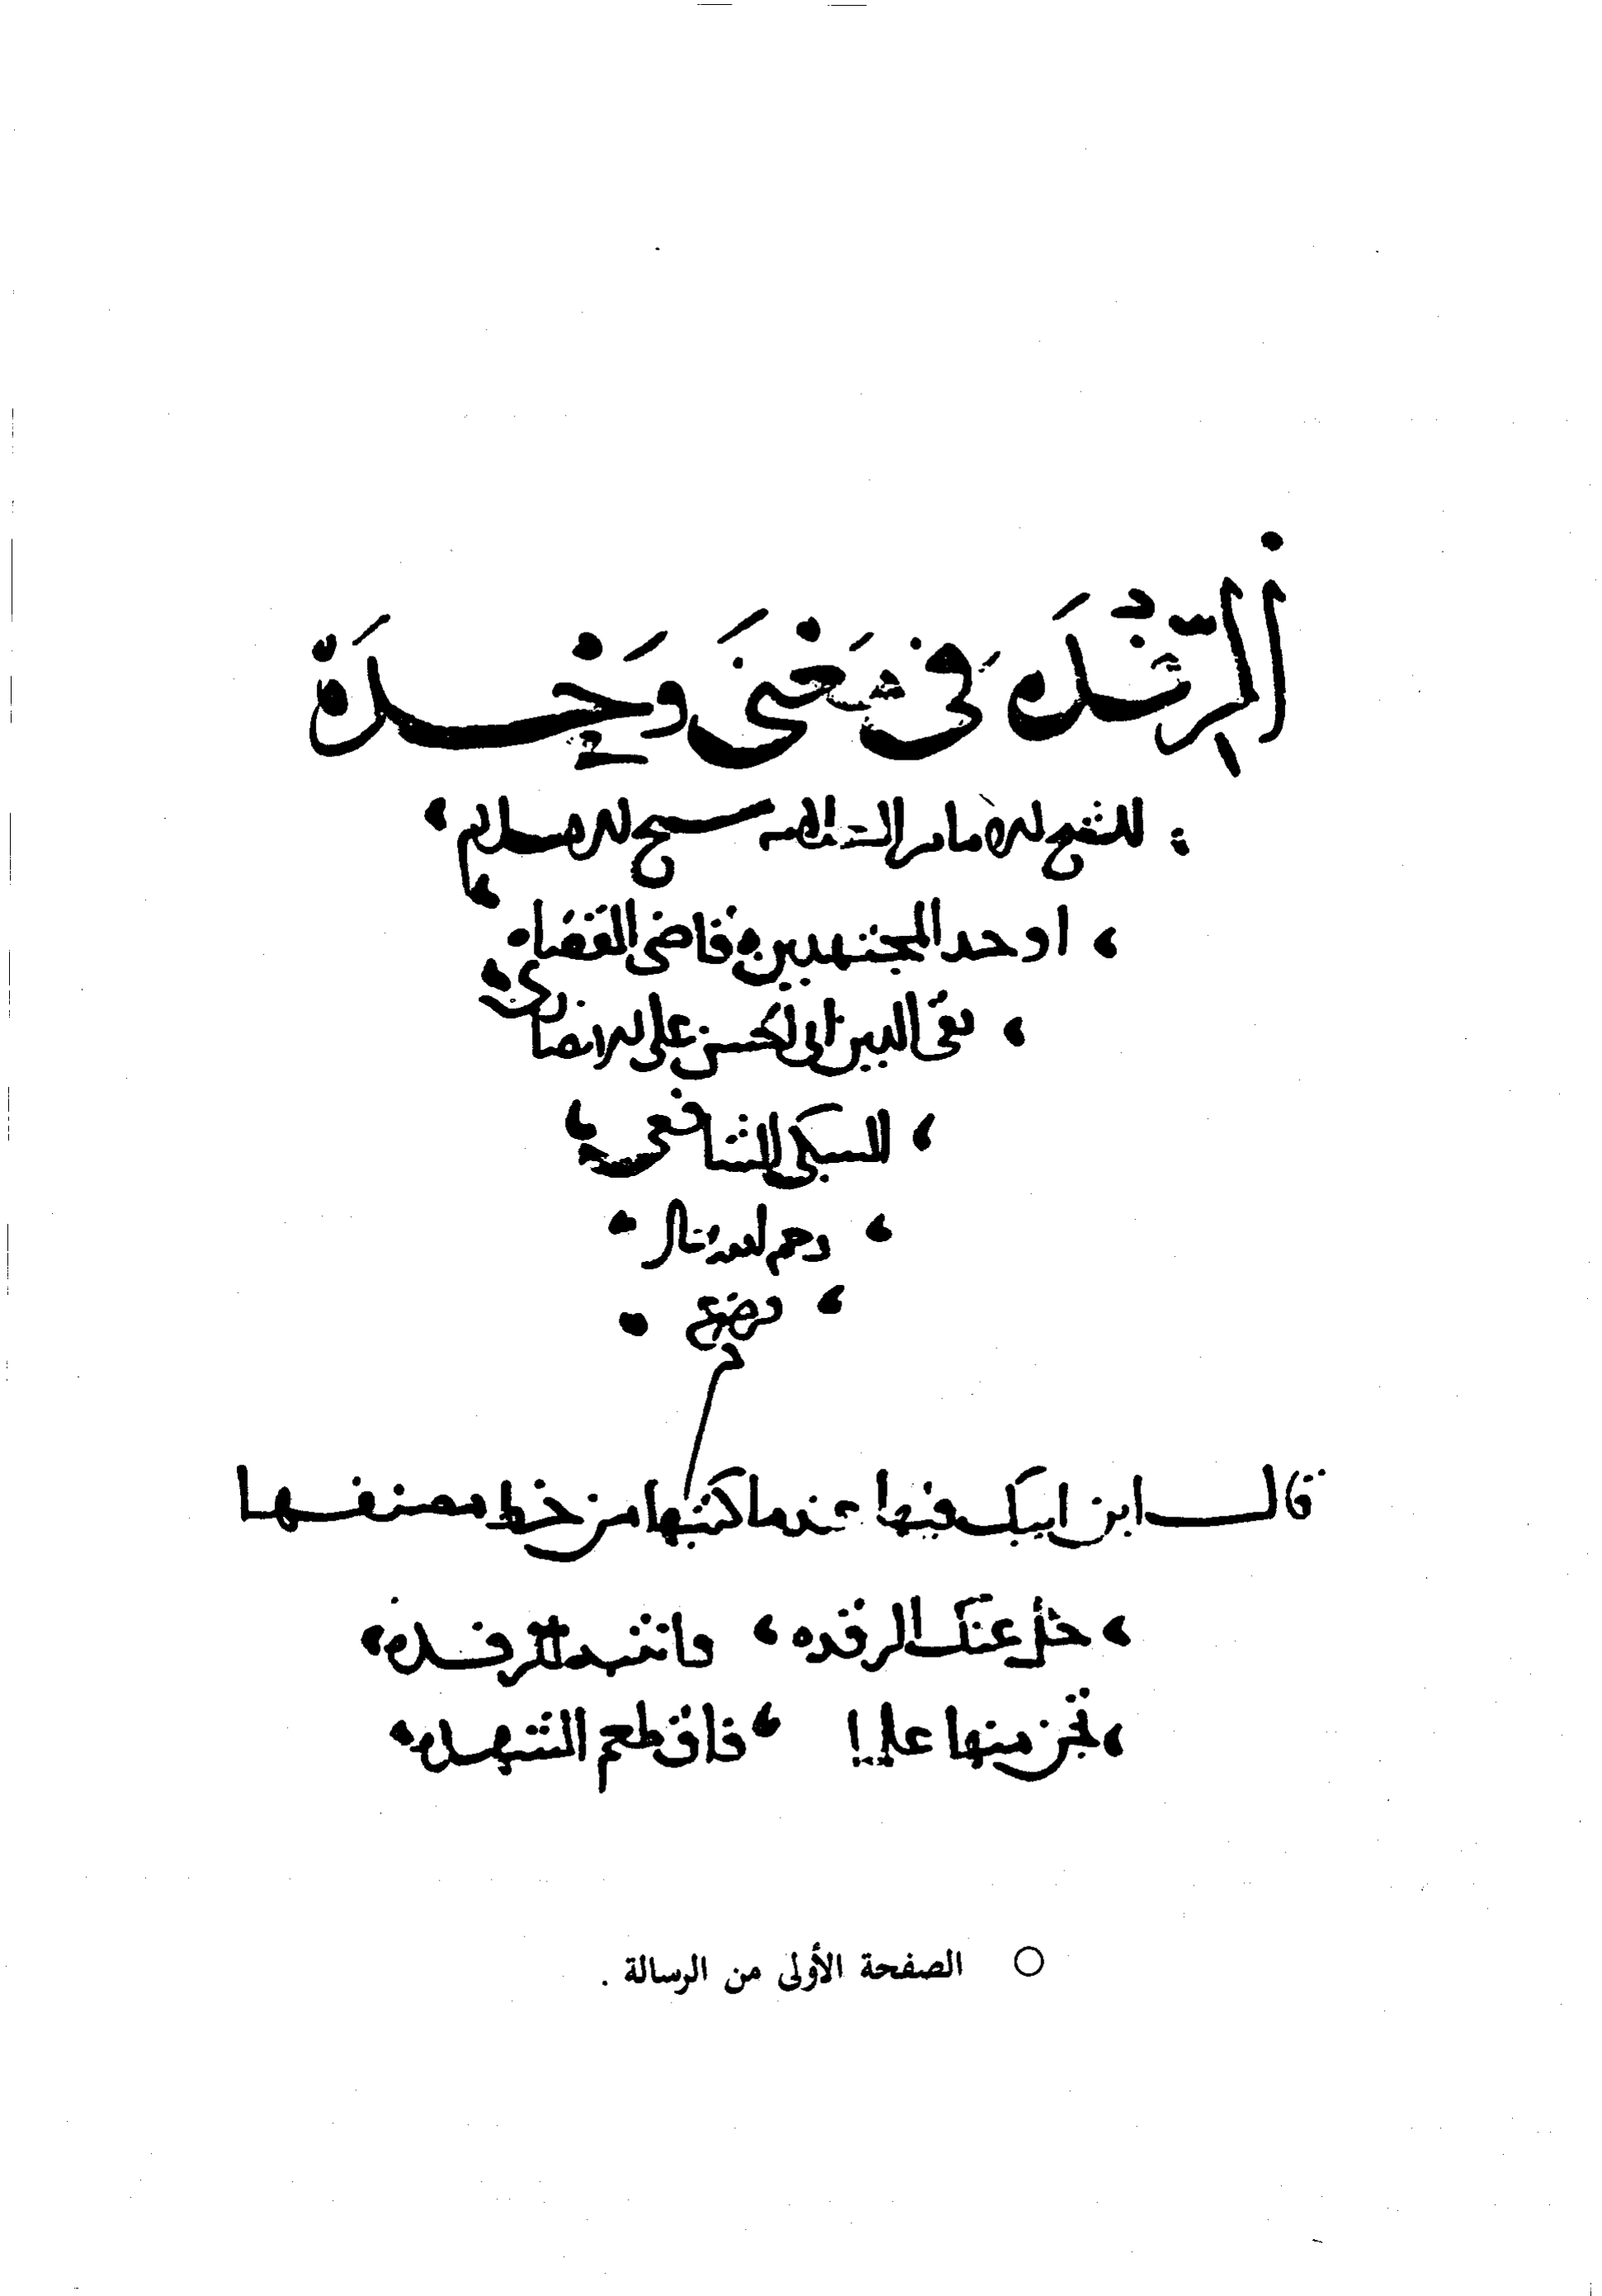 الرِّفْدَه فِي مَعْنَى وَحْدَهْ
للشيخ الامام العلامه شيخ الاسلام
اوحد المجتهدين قاضي القضاه
تقي الدين ابي الحسن علي الانصاري
السبكي الشافعي
رحمه الله تعالى
ورضي عنه
قال ابن ايبك فيها عندما كتبها من خط مصنفها
خل عنك الرقده وانتبه للرفده
تجن منها علما فاق طعم الشهده
○ الصفحة الأولى من الرسالة .